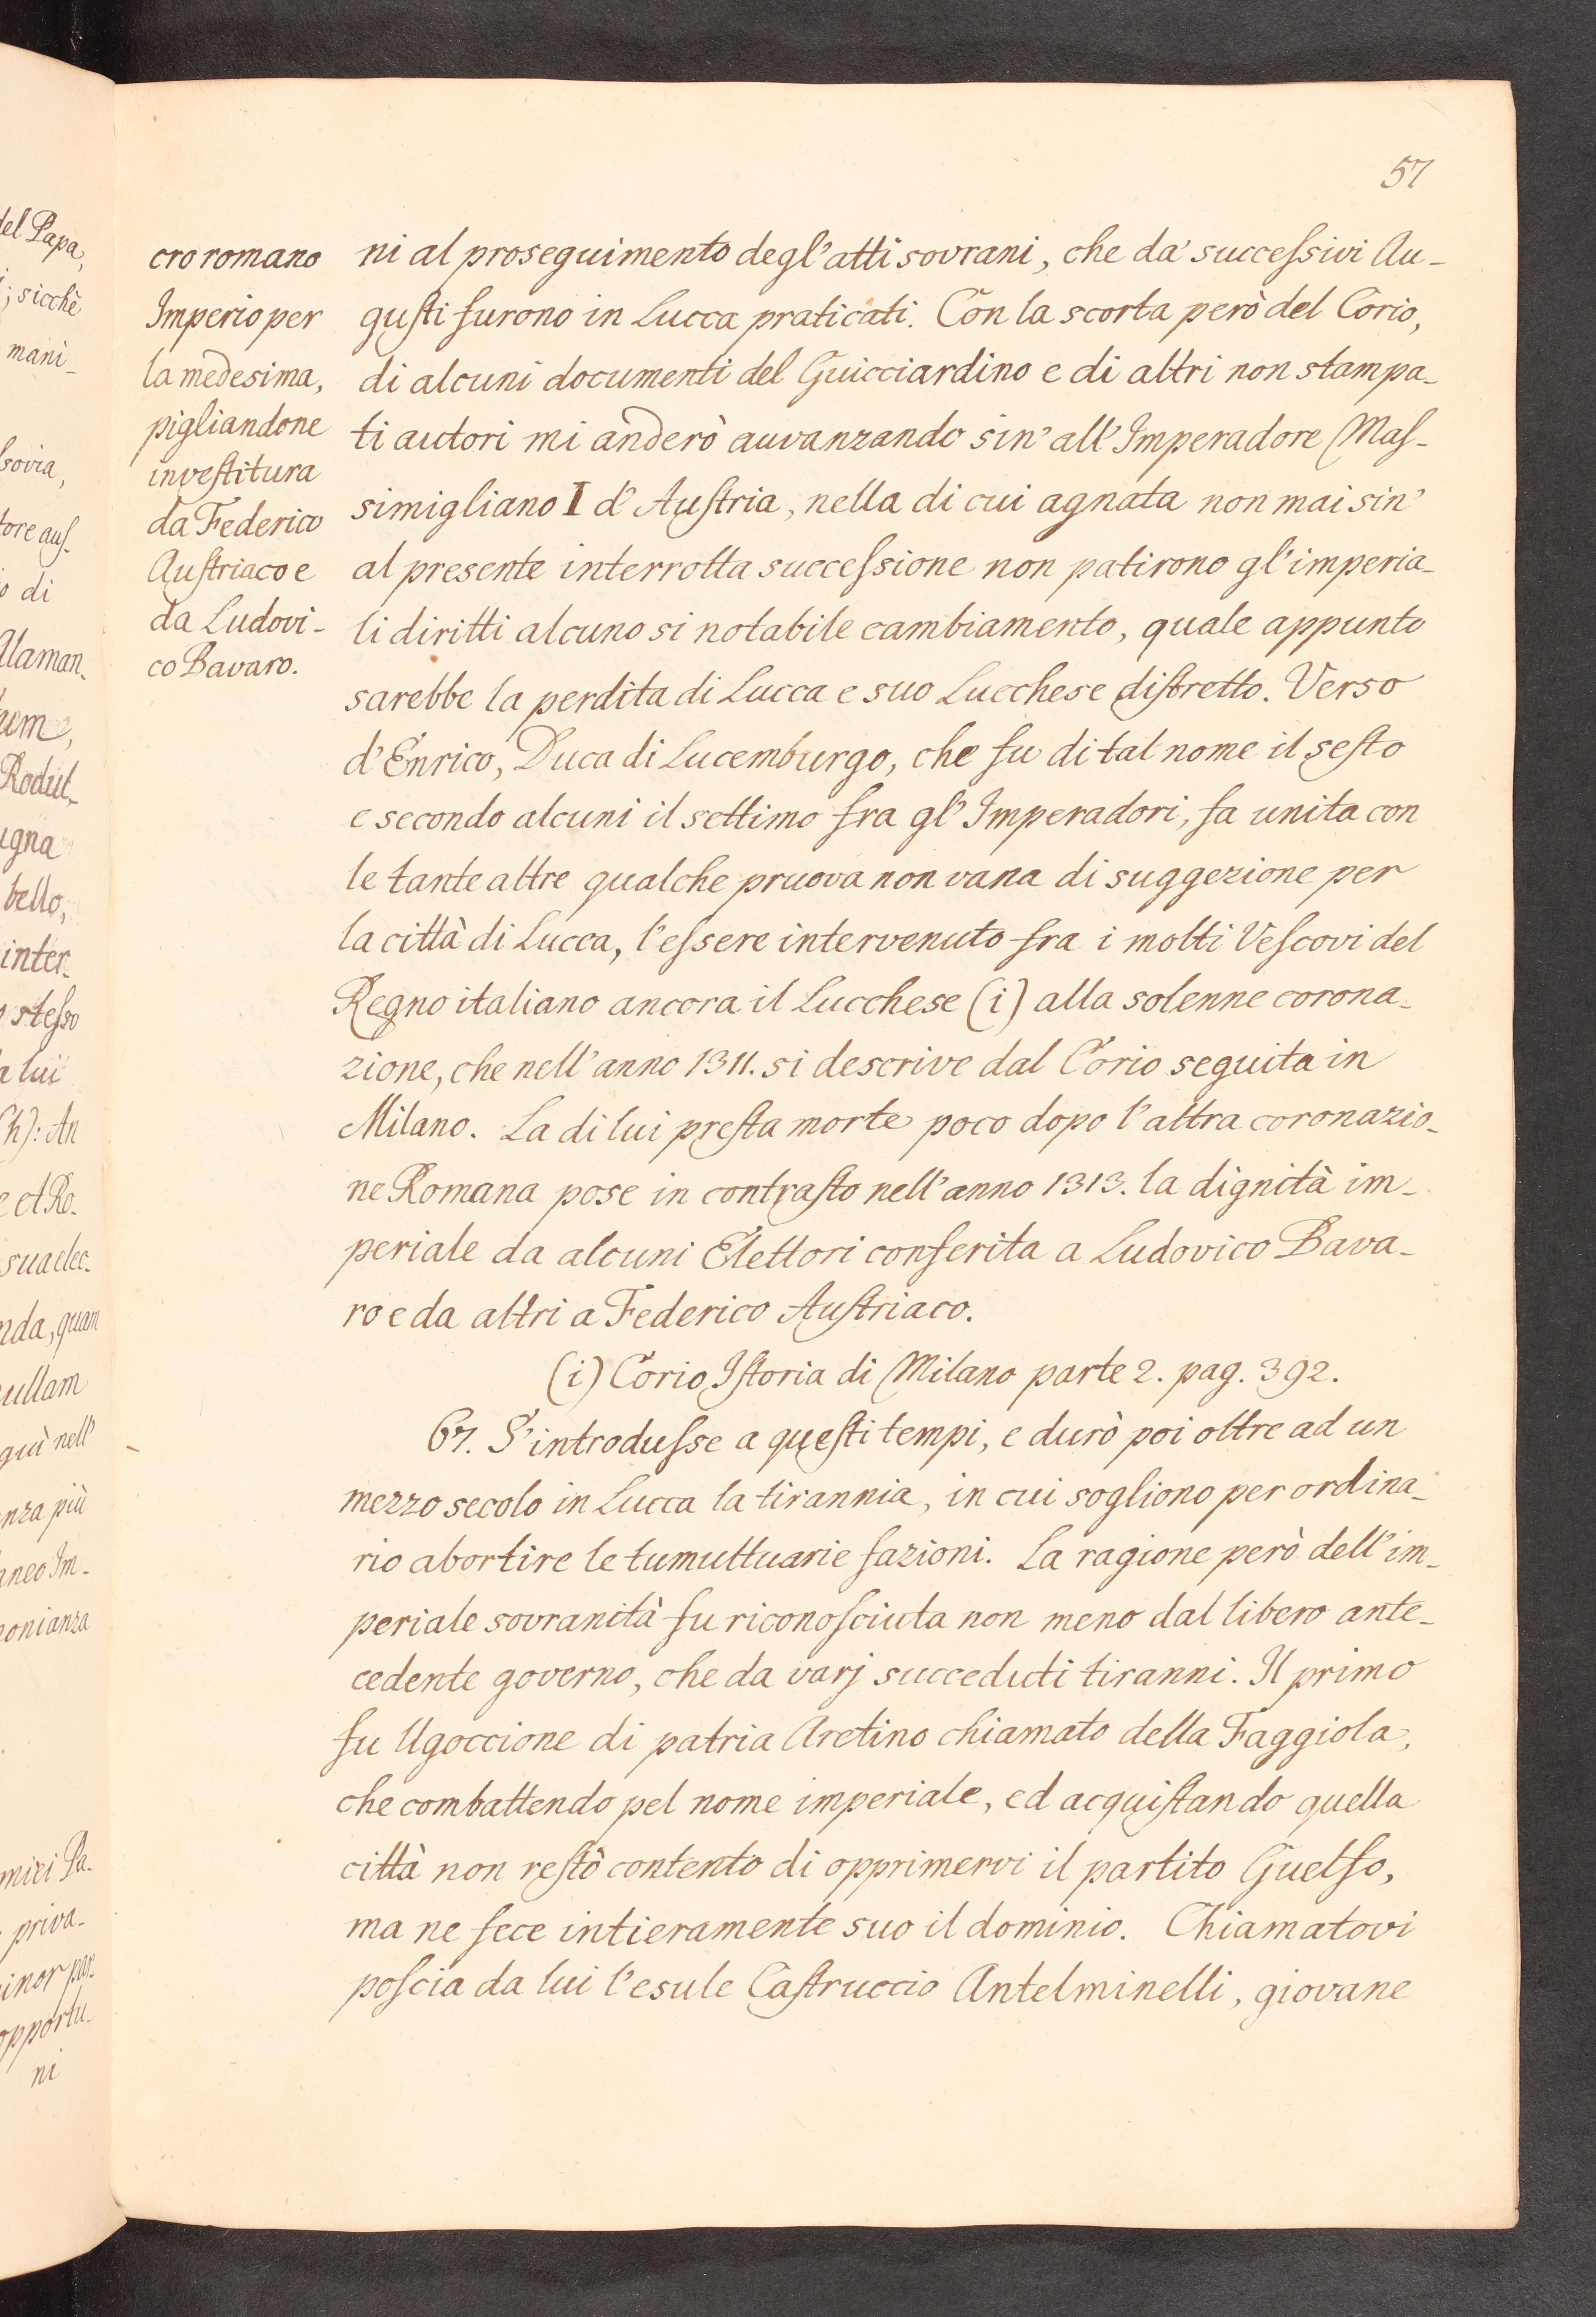 57
cro romano
Imperio per
la medesima,
pigliandone
investitura
da Federico
Austriaco e
da Ludovi-
co Bavaro.
ni al proseguimento degl'atti sovrani, che da' successivi Au-
gusti furono in Lucca praticati. Con la scorta però del Corio,
di alcuni documenti del Guicciardino e di altri non stampa-
ti autori mi anderò auvanzando sin' all' Imperadore Mas-
simigliano I d' Austria, nella di cui agnata non mai sin'
al presente interrotta successione non patirono gl' imperia-
li diritti alcuno si notabile cambiamento, quale appunto
sarebbe la perdita di Lucca e suo Lucchese distretto. Verso
d' Enrico, Duca di Lucemburgo, che fu di tal nome il sesto
e secondo alcuni il settimo fra gl' Imperadori, fa unita con
le tante altre qualche pruova non vana di suggezione per
la città di Lucca, l'essere intervenuto fra i molti Vescovi del
Regno italiano ancora il Lucchese (i) alla solenne corona-
zione, che nell' anno 1311. si descrive dal Corio seguita in
Milano. La di lui presta morte poco dopo l'altra coronazio-
ne Romana pose in contrasto nell' anno 1313. la dignità im-
periale da alcuni Elettori conferita a Ludovico Bava-
ro e da altri a Federico Austriaco.
(i) Corio Istoria di Milano parte 2. pag. 392.
67. S' introdusse a questi tempi, e durò poi oltre ad un
mezzo secolo in Lucca la tirannia, in cui sogliono per ordina-
rio abortire le tumultuarie fazioni. La ragione però dell' im-
periale sovranità fu riconosciuta non meno dal libero ante-
cedente governo, che da varj succeduti tiranni. Il primo
fu Ugoccione di patria Aretino chiamato della Faggiola,
che combattendo pel nome imperiale, ed acquistando quella
città non restò contento di opprimervi il partito Guelfo,
ma ne fece intieramente suo il dominio. Chiamatovi
poscia da lui l'esule Castruccio Antelminelli, giovane